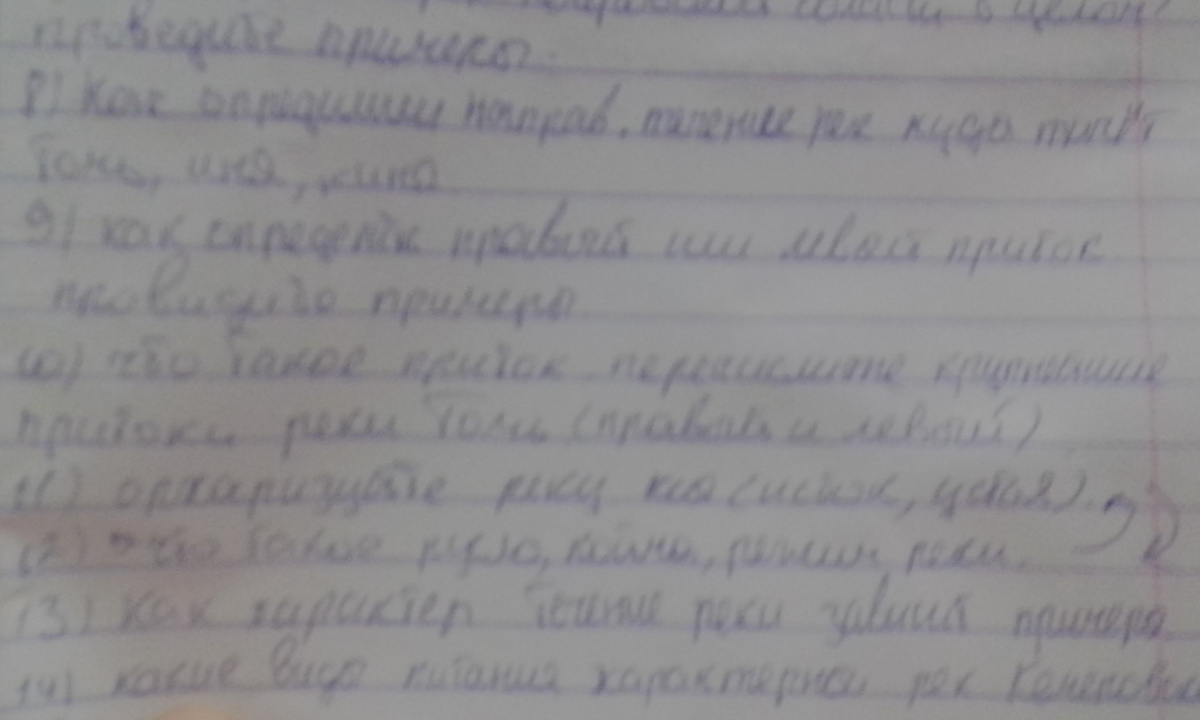 в целом
проведите примеры.
8) Как определили направ. течение рек куда
Томь, иня, кина
9) как определить правый или левый приток
примеры
10) что такое приток перечислите крупнейшие
притоки реки Томи (правый и левой)
11) реку (исток, устья).
12) что такое русло, пойма, режим реки.
13) как характер течение реки примера
14) какие вида питания характерной рек